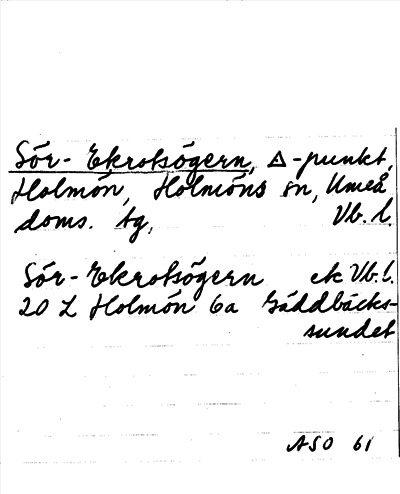 Sör-Ekrotsögern, △-punkt,
Holmön, Holmöns sn, Umeå
doms. tg, Vb. l.
Sör-Ekrotsögern ek Vb. l.
20 L Holmön 6a Gäddbäcks-
sundet
ASO 61